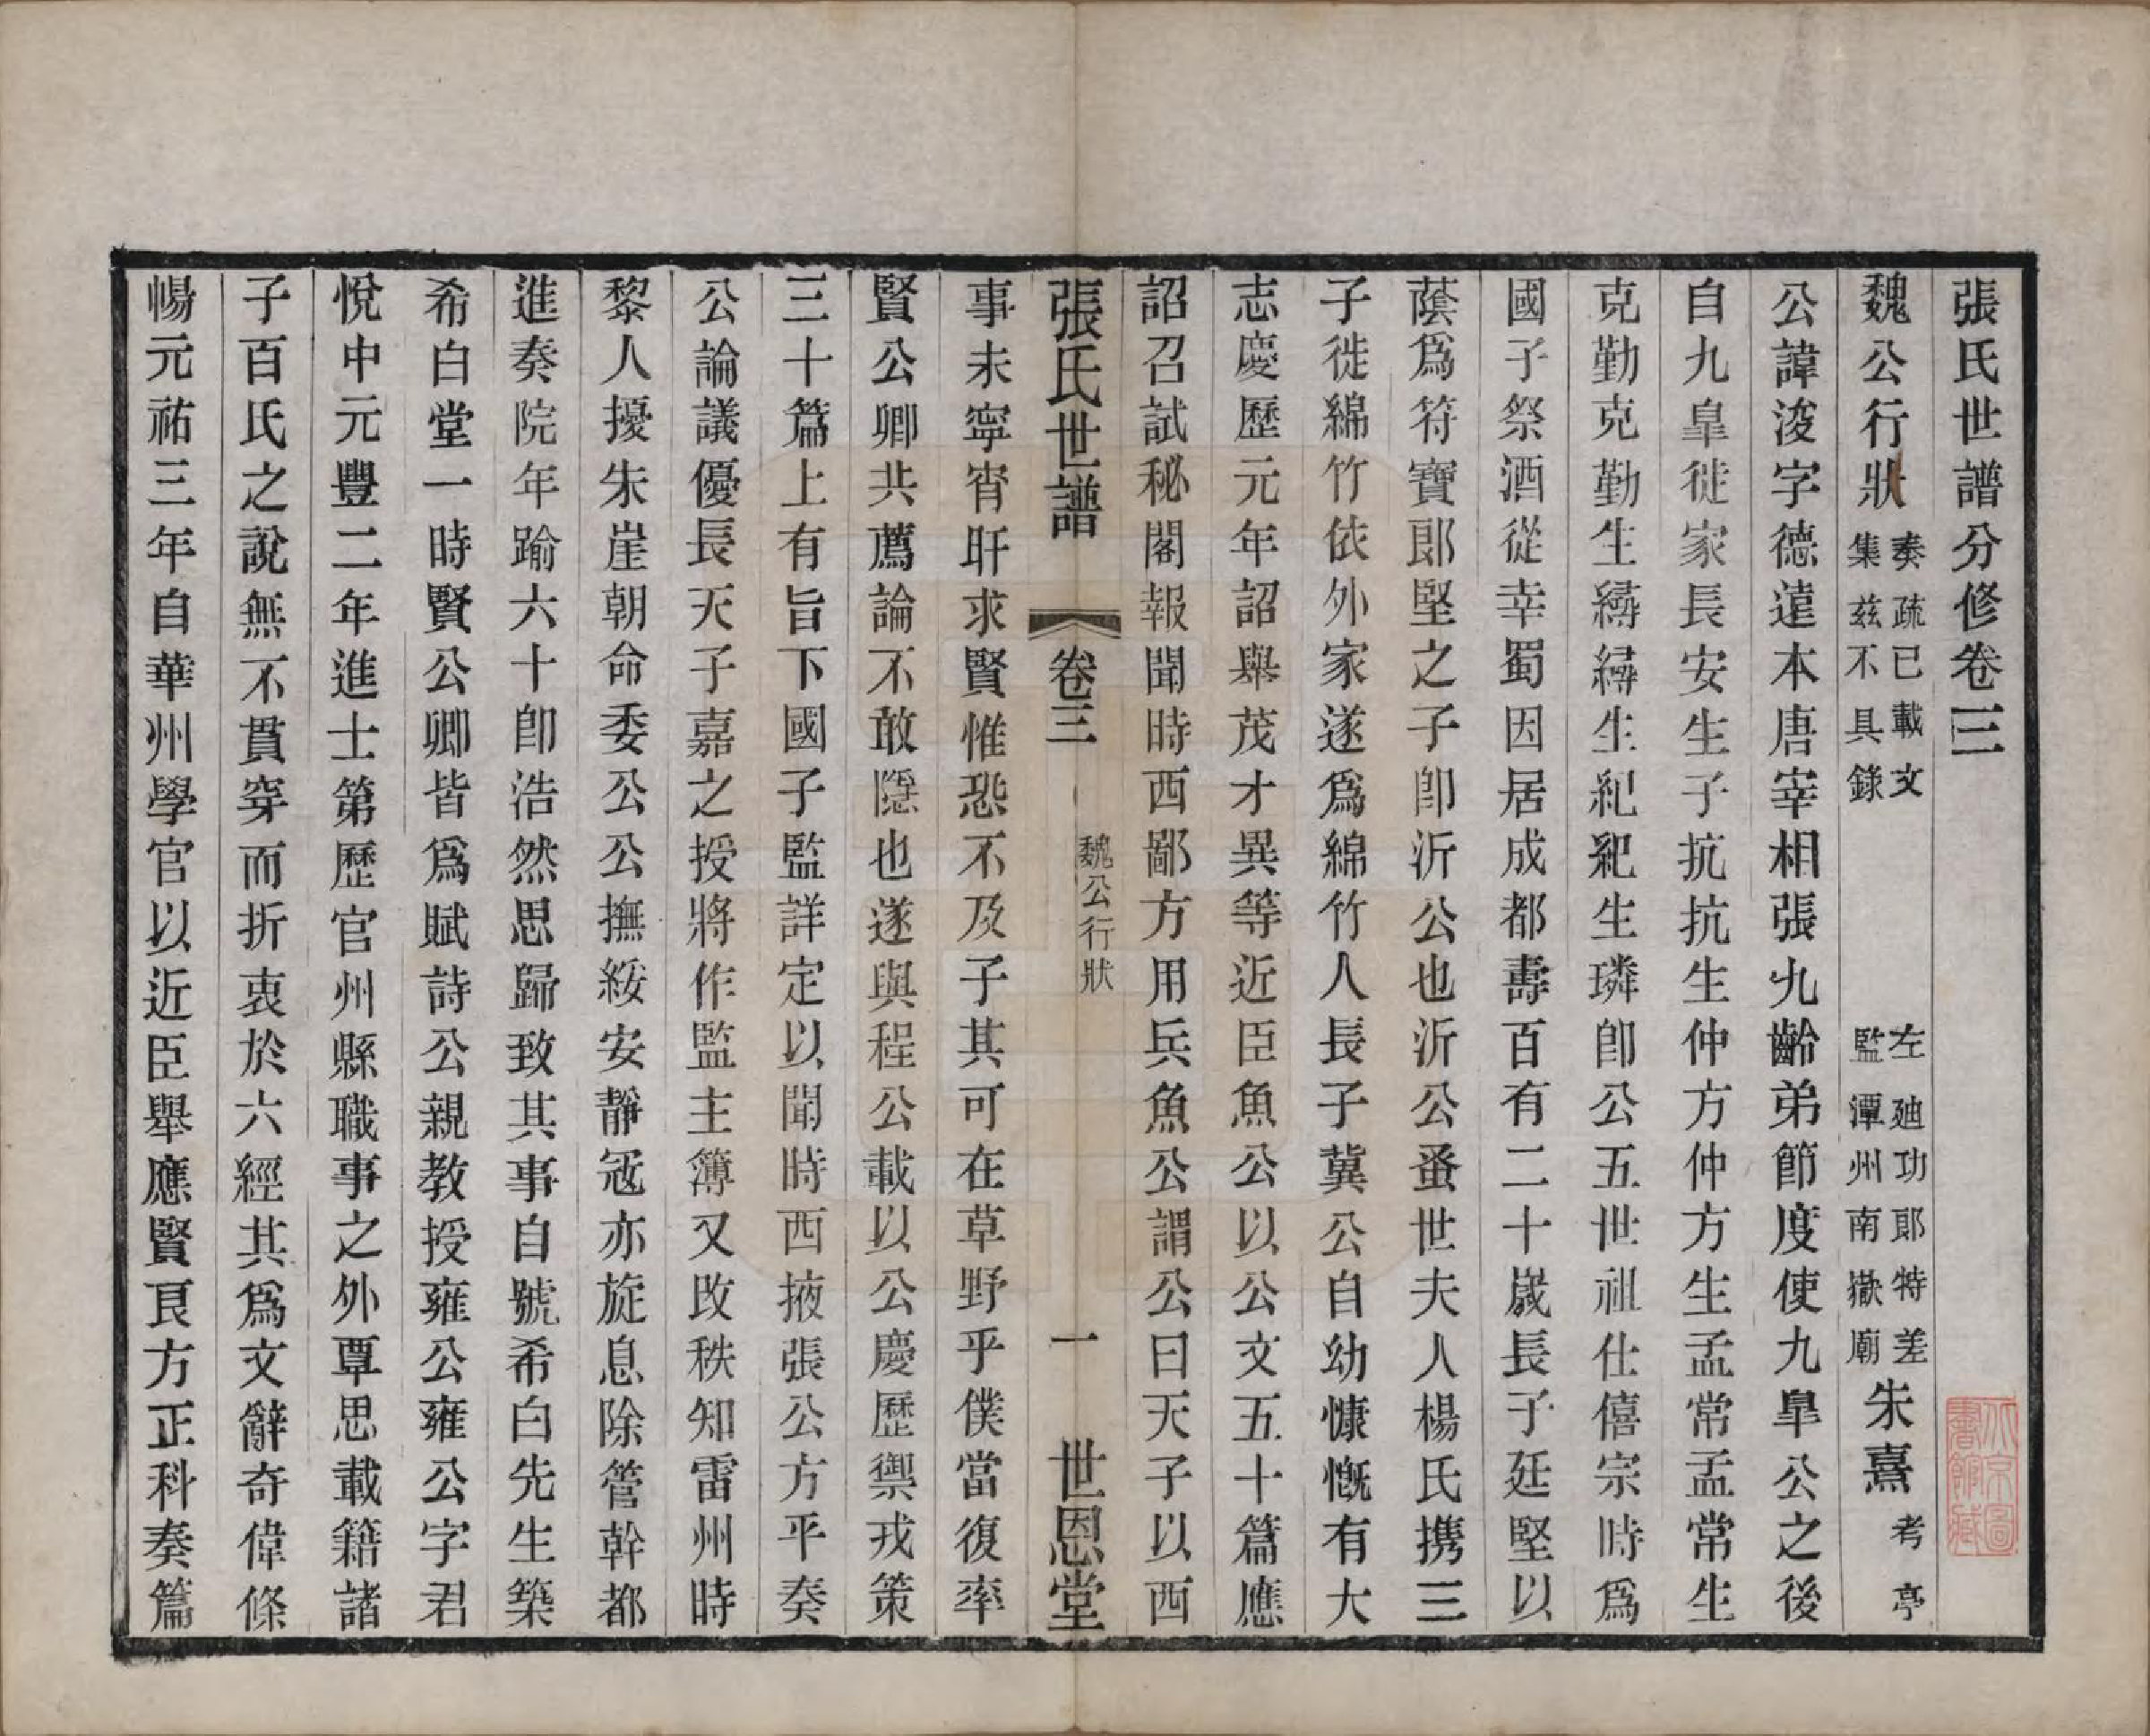 張氏世譜分修卷三
魏公行狀 奏疏已載文集茲不具錄 左廸功郎特差監潭州南嶽廟朱熹考亭
公諱浚字德遠本唐宰相張九齡弟節度使九臯公之後
自九臯徙家長安生子抗抗生仲方仲方生孟常孟常生
克勤克勤生縟縟生紀紀生璘卽公五世祖仕僖宗時爲
國子祭酒從幸蜀因居成都壽百有二十歲長子廷堅以
蔭爲符寶郎堅之子卽沂公也沂公蚤世夫人楊氏携三
子徙綿竹依外家遂爲綿竹人長子冀公自幼慷慨有大
志慶歷元年詔舉茂才異等近臣魚公以公文五十篇應
詔召試秘閣報聞時西鄙方用兵魚公謂公曰天子以西
張氏世譜 卷三 魏公行狀 一 世恩堂
事未寧宵旰求賢惟恐不及子其可在草野乎僕當復率
賢公卿共薦論不敢隱也遂與程公載以公慶歷禦戎策
三十篇上有旨下國子監詳定以聞時西掖張公方平奏
公論議優長天子嘉之授將作監主簿又改秩知雷州時
黎人擾朱崖朝命委公公撫綏安靜寇亦旋息除管幹都
進奏院年踰六十卽浩然思歸致其事自號希白先生築
希白堂一時賢公卿皆爲賦詩公親教授雍公雍公字君
悅中元豐二年進士第歷官州縣職事之外覃思載籍諸
子百氏之說無不貫穿而折衷於六經其爲文辭奇偉條
暢元祐三年自華州學官以近臣舉應賢良方正科奏篇